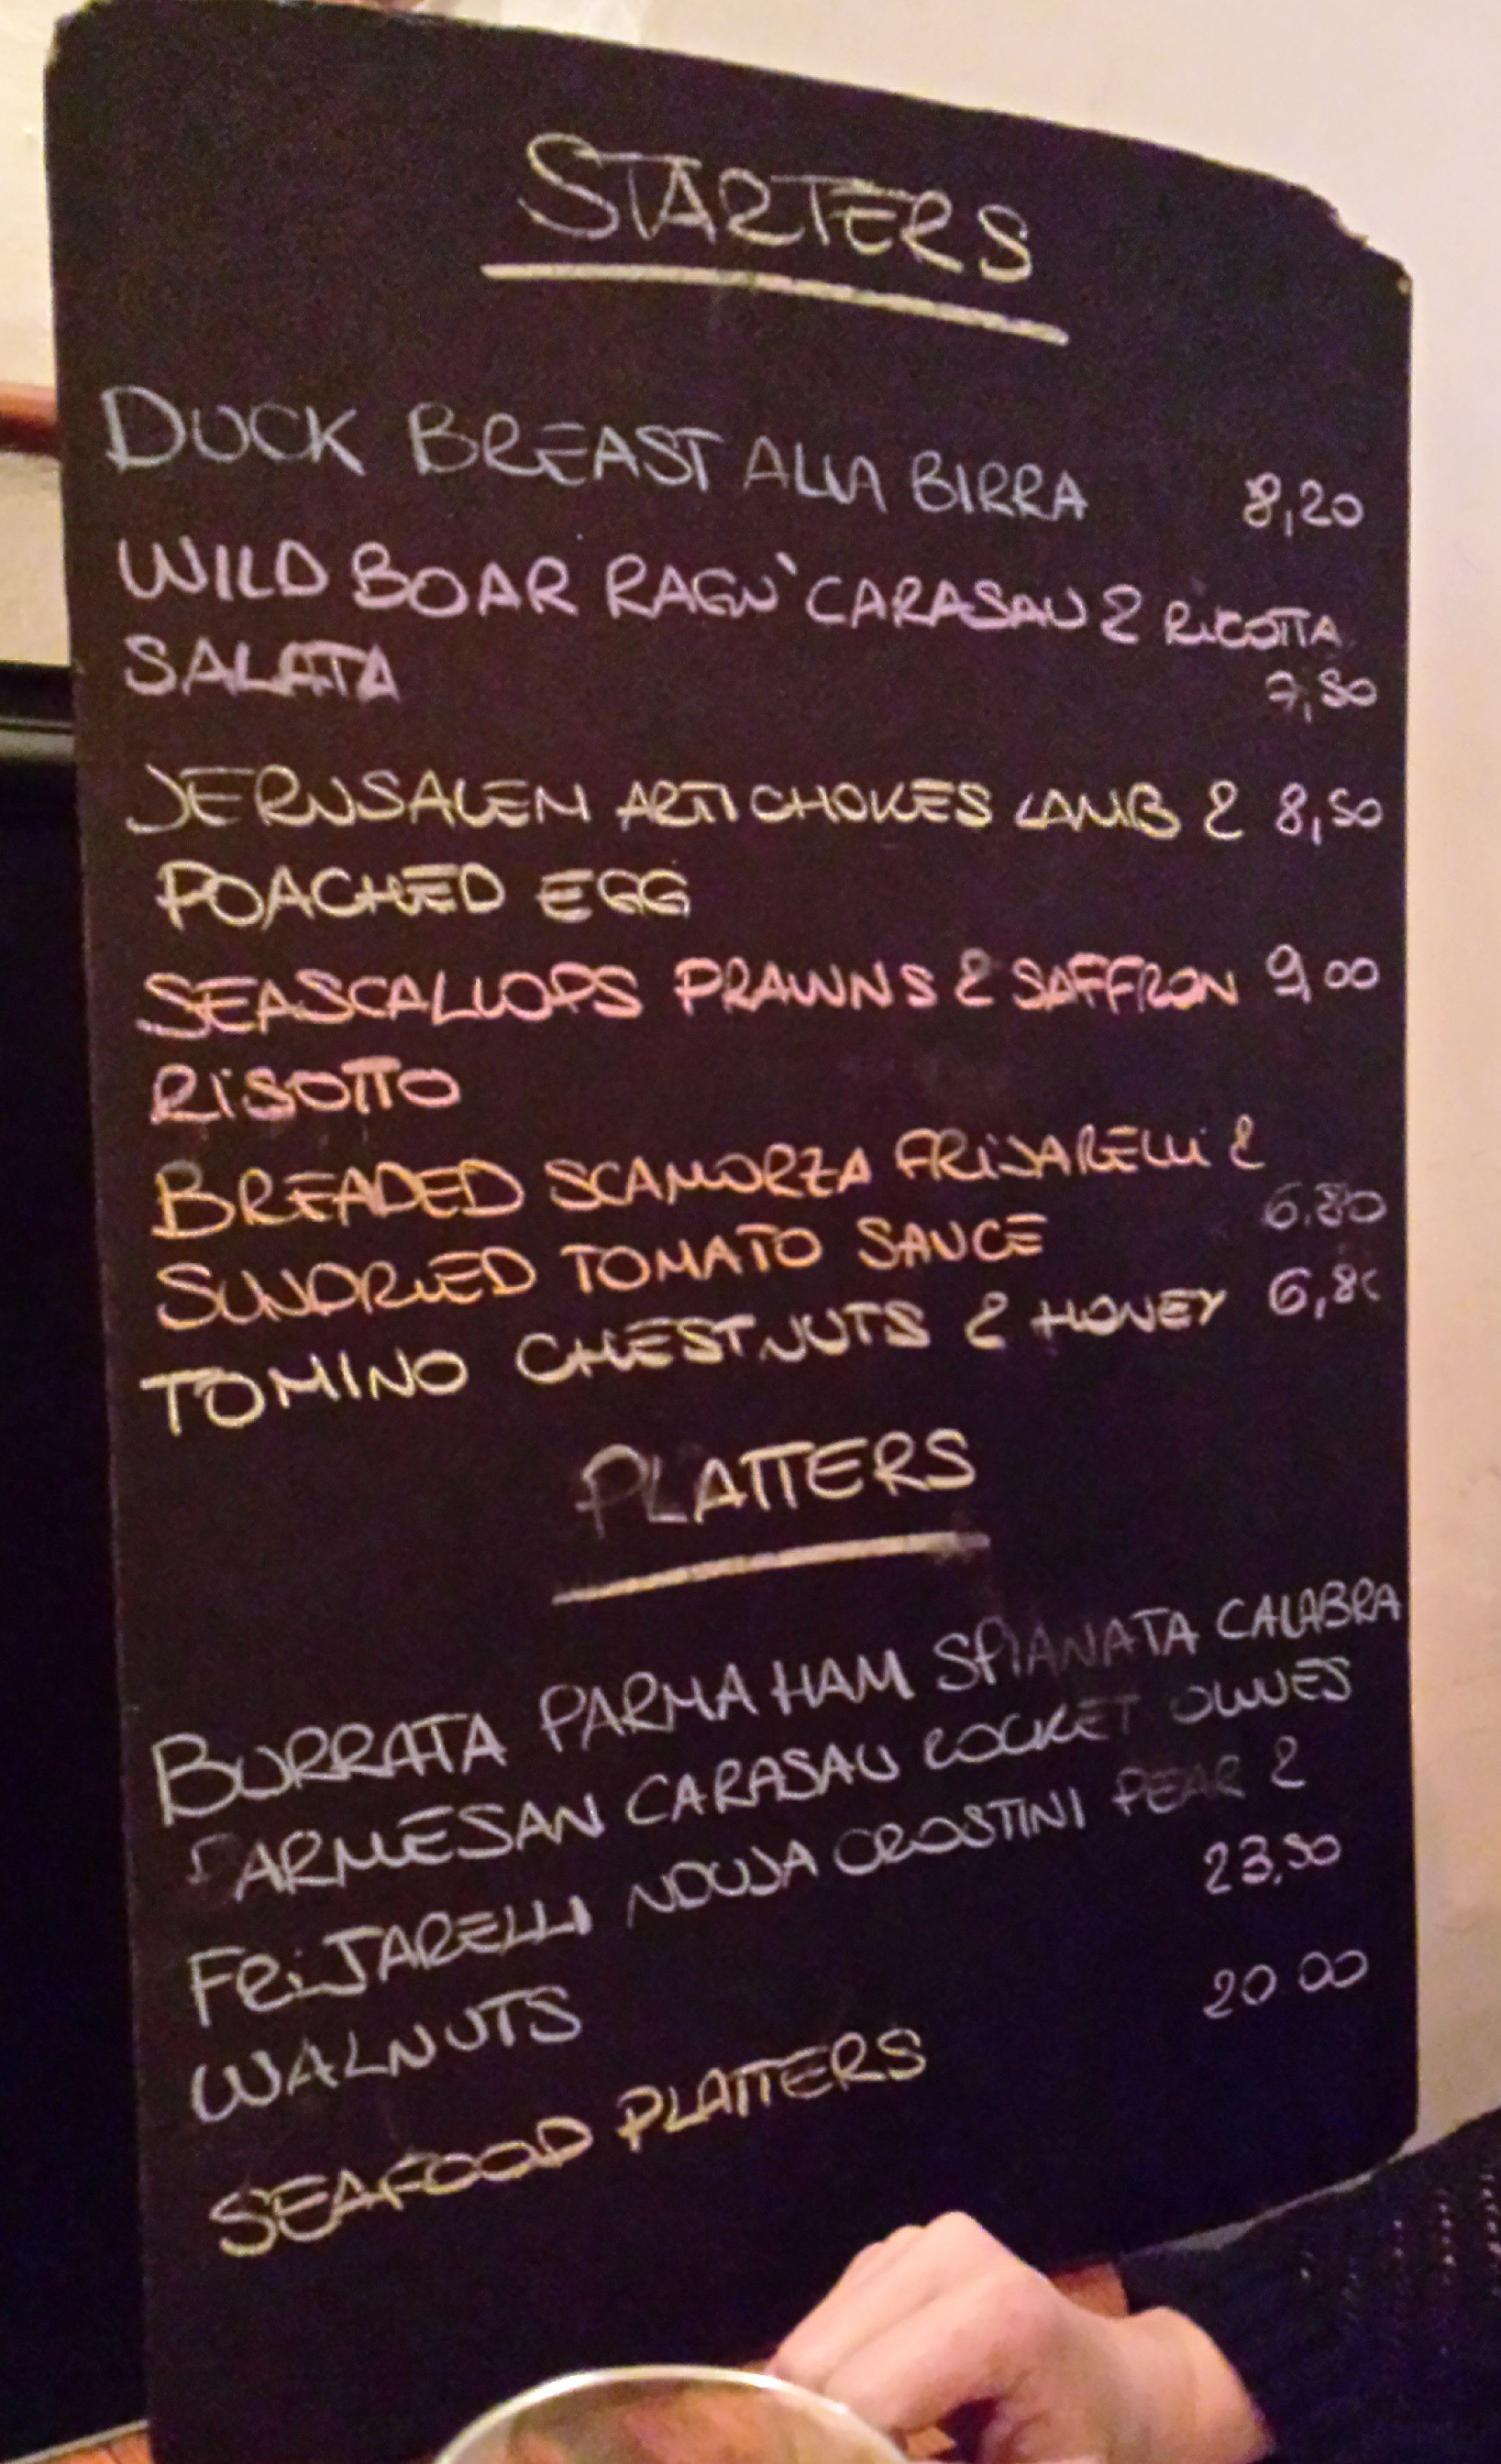 STARTERS
DUCK BREAST ALLA BIRRA 8,20
WILD BOAR RAGU' CARASAU & RICOTTA
SALATA 7,50
JERUSALEM ARTICHOKES LAMB & 8,50
POACHED EGG
SEASCALLOPS PRAWNS & SAFFRON 9,00
RISOTTO
BREADED SCAMORZA FRIJARELLI &
SUNDRIED TOMATO SAUCE 6.80
TOMINO CHESTNUTS & HONEY 6,80
PLATTERS
BURRATA PARMA HAM SPIANATA CALABRA
PARMESAN CARASAU ROCKET OLIVES
FRIJARELLI NDUJA CROSTINI PEAR &
WALNUTS 23,50
SEAFOOD PLATTERS 20 00